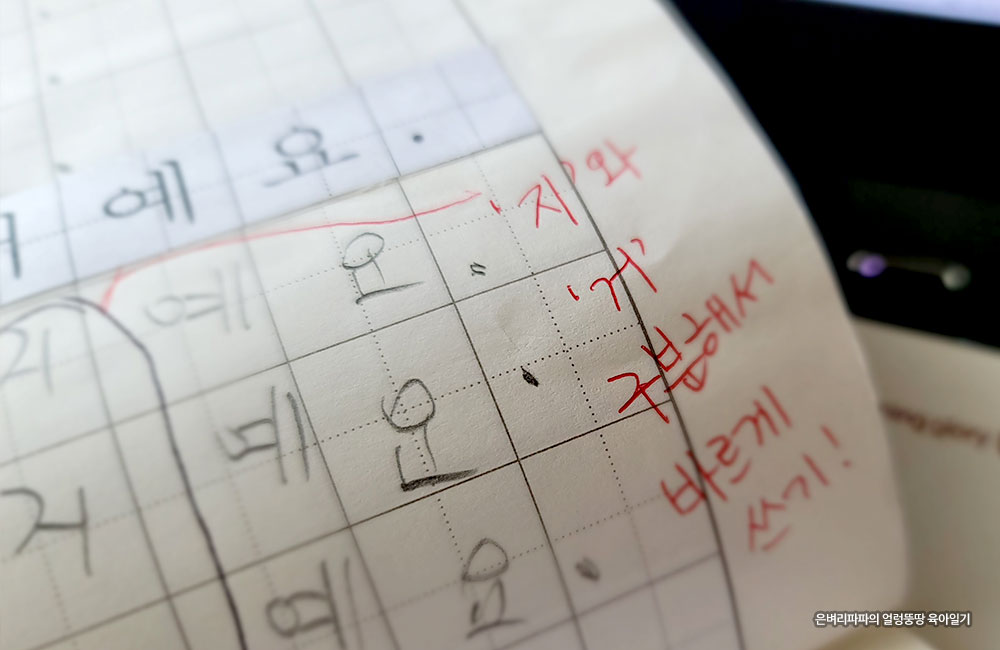 예요.
예요.
거예요.
예요.
'지'와
'거'
구분해서
바르게
쓰기!
은벼리파파의 얼렁뚱땅 육아일기